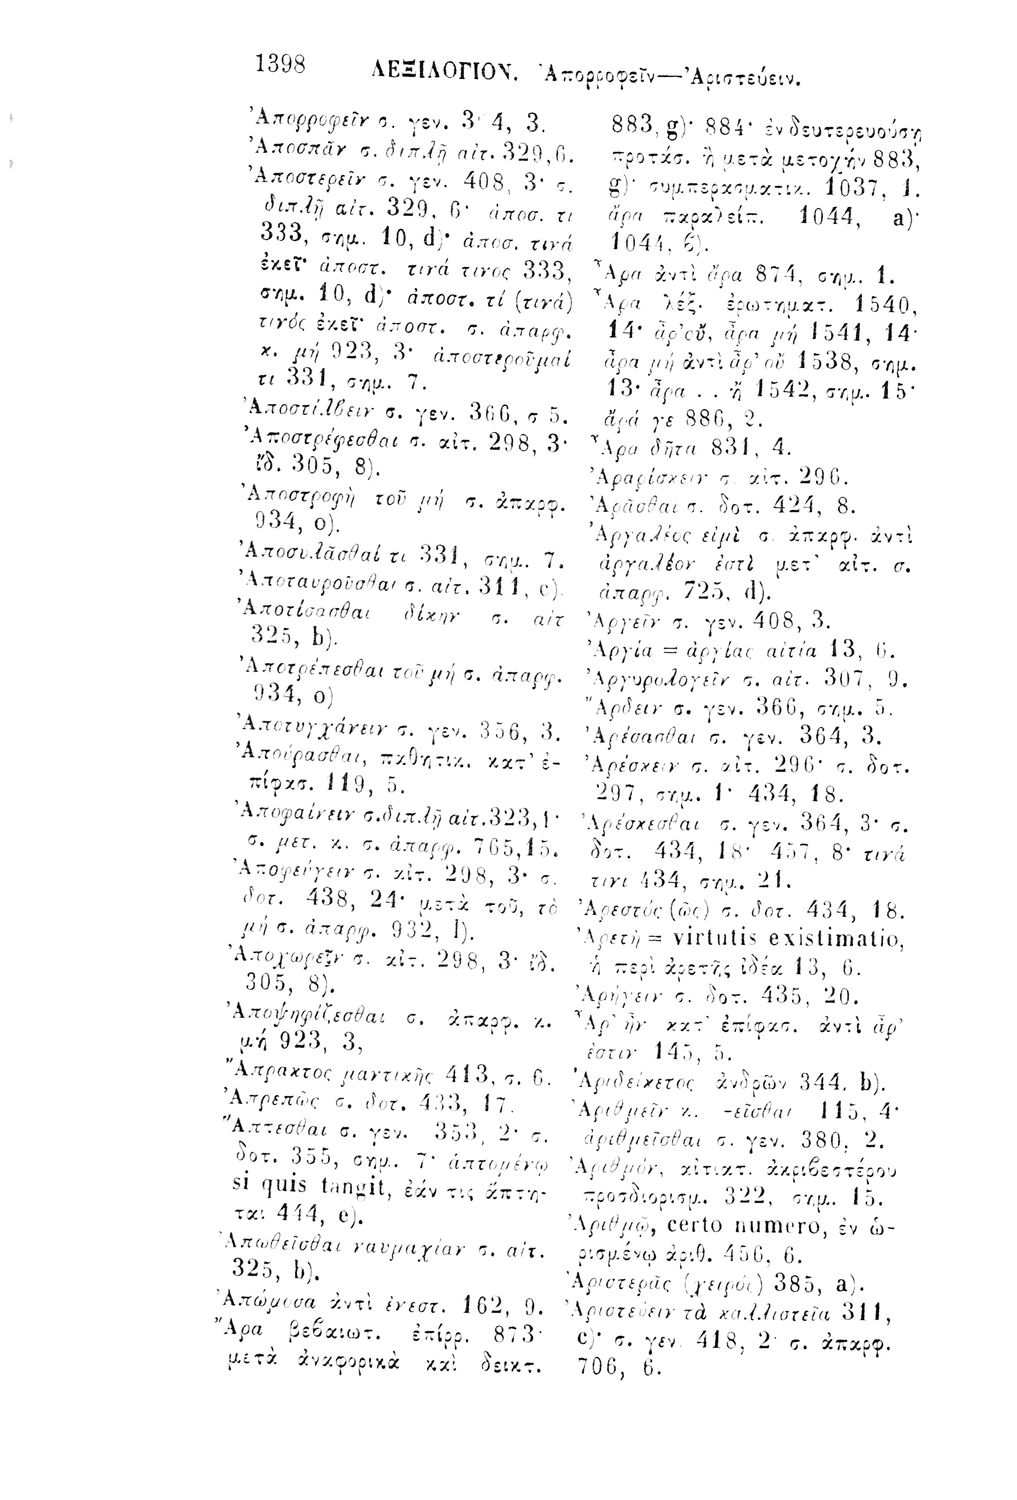 1398 ΛΕΞΙΛΟΓΙΟΝ. Ἀπορροφεῖν—Ἀριστεύειν.
Ἀπορροφεῖν σ. γεν. 3· 4, 3.
Ἀποσπᾶν σ. διπλῇ αἰτ. 329,6.
Ἀποστερεῖν σ. γεν. 408, 3· σ.
διπλῇ αἰτ. 329, 6· ἀποσ. τι
333, σημ. 10, d)· ἀποσ. τινά
ἐκεῖ· ἀποστ. τινά τινος 333,
σημ. 10, d)· ἀποστ. τί (τινά)
τινός ἐκεῖ· ἀποστ. σ. ἀπαρφ.
κ. μή 923, 3· ἀποστεροῦμαί
τι 331, σημ. 7.
Ἀποστίλβειν σ. γεν. 366, σ 5.
Ἀποστρέφεσθαι σ. αἰτ. 298, 3·
ἴδ. 305, 8).
Ἀποστροφὴ τοῦ μή σ. ἀπαρφ.
934, ο).
Ἀποσυλᾶσθαί τι 331, σημ. 7.
Ἀποταυροῦσθαι σ. αἰτ. 311, c).
Ἀποτίσασθαι δίκην σ. αἰτ
325, b).
Ἀποτρέπεσθαι τοῦ μή σ. ἀπαρφ.
934, ο)
Ἀποτυγχάνειν σ. γεν. 356, 3.
Ἀπούρασθαι, παθητικ. κατ' ἐ-
πίφασ. 119, 5.
Ἀποφαίνειν σ.διπλῇ αἰτ.323,1·
σ. μετ. κ. σ. ἀπαρφ. 765,15.
Ἀποφεύγειν σ. αἰτ. 298, 3· σ.
δοτ. 438, 24· μετὰ τοῦ, τὸ
μή σ. ἀπαρφ. 932, l).
Ἀποχωρεῖν σ. αἰτ. 298, 3· ἴδ.
305, 8).
Ἀποψηφίζεσθαι σ. ἀπαρφ. κ.
μή 923, 3,
Ἄπρακτος μαντικῆς 413, σ. 6.
Ἀπρεπῶς σ. δοτ. 433, 17.
Ἅπτεσθαι σ. γεν. 353, 2· σ.
δοτ. 355, σημ. 7· ἁπτομένῳ
si quis tangit, ἐάν τις ἅπτη-
ται 444, e).
Ἀπωθεῖσθαι ναυμαχίαν σ. αἰτ.
325, b).
Ἀπώμοσα ἀντὶ ἐνεστ. 162, 9.
Ἄρα βεβαιωτ. ἐπίρρ. 873·
μετὰ ἀναφορικὰ καὶ δεικτ.
883, g)· 884· ἐν δευτερευούσῃ
προτάσ. ἢ μετὰ μετοχήν 883,
g)· συμπερασματικ. 1037, 1.
ἄρα παραλείπ. 1044, a)·
1044, 6).
Ἆρα ἀντὶ ἄρα 874, σημ. 1.
Ἆρα λέξ. ἐρωτηματ. 1540,
14· ἆρ' οὔ, ἆρα μή 1541, 14·
ἆρα μή ἀντὶ ἆρ' οὔ 1538, σημ.
13· ἆρα . . ἤ 1542, σημ. 15·
ἄρά γε 886, 2.
Ἆρα δῆτα 831, 4.
Ἀραρίσκειν σ. αἰτ. 296.
Ἀρᾶσθαι σ. δοτ. 424, 8.
Ἀργαλέος εἰμὶ σ. ἀπαρφ. ἀντὶ
ἀργαλέον ἐστὶ μετ' αἰτ. σ.
ἀπαρφ. 725, d).
Ἀργεῖν σ. γεν. 408, 3.
Ἀργία = ἀργίας αἰτία 13, 6.
Ἀργυρολογεῖν σ. αἰτ. 307, 9.
Ἄρδειν σ. γεν. 366, σημ. 5.
Ἀρέσασθαι σ. γεν. 364, 3.
Ἀρέσκειν σ. αἰτ. 296· σ. δοτ.
297, σημ. 1· 434, 18.
Ἀρέσκεσθαι σ. γεν. 364, 3· σ.
δοτ. 434, 18· 457, 8· τινά
τινι 434, σημ. 21.
Ἀρεστός (ῶς) σ. δοτ. 434, 18.
Ἀρετὴ = virtutis existimatio,
ἡ περὶ ἀρετῆς ἰδέα 13, 6.
Ἀρήγειν σ. δοτ. 435, 20.
Ἆρ' ἦν κατ' ἐπίφασ. ἀντὶ ἆρ'
ἐστιν 145, 5.
Ἀριδείκετος ἀνδρῶν 344, b).
Ἀριθμεῖν κ. -εῖσθαι 115, 4·
ἀριθμεῖσθαι σ. γεν. 380, 2.
Ἀριθμόν, αἰτιατ. ἀκριβεστέρου
προσδιορισμ. 322, σημ. 15.
Ἀριθμῷ, certo numero, ἐν ὡ-
ρισμένῳ ἀριθ. 456, 6.
Ἀριστερᾶς (χειρός) 385, a).
Ἀριστεύειν τὰ καλλιστεῖα 311,
c)· σ. γεν. 418, 2· σ. ἀπαρφ.
706, 6.